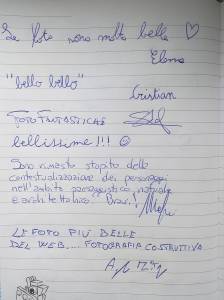 Le foto sono molto belle ♡
Elena
"bello bello"
Cristian
FOTO FANTASTICHE
bellissime!!! ☺
Sono rimasto stupito dalla
contestualizzazione dei personaggi
nell'ambito paesaggistico, naturale
e architettonico. Bravi!
LE FOTO PIÙ BELLE
DEL WEB... FOTOGRAFIA COSTRUTTIVA